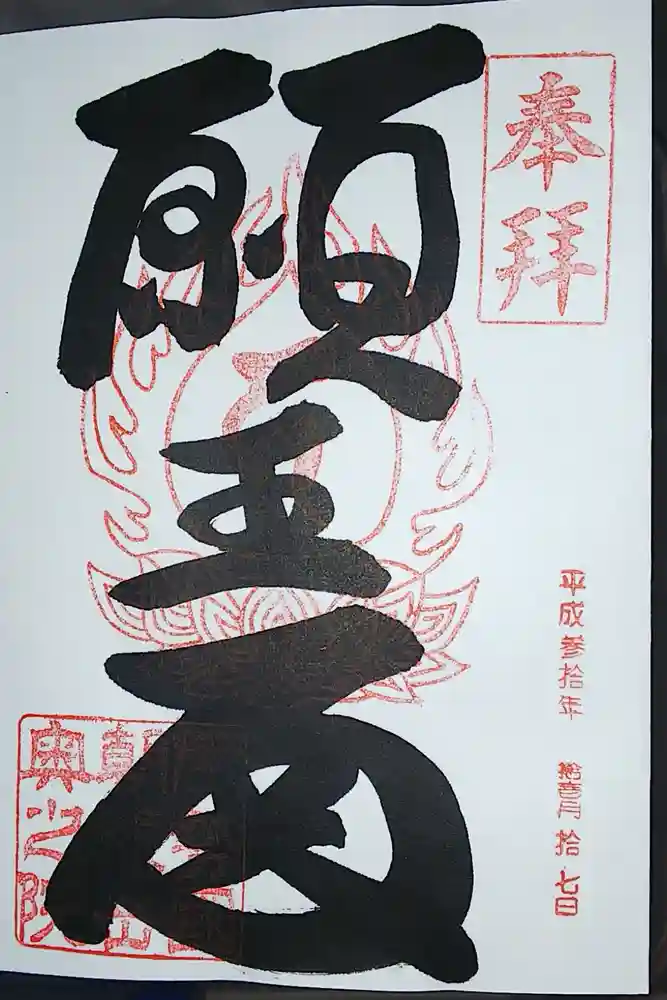 奉拝
願王
平成参拾年 拾壹月 拾七日
奥之院